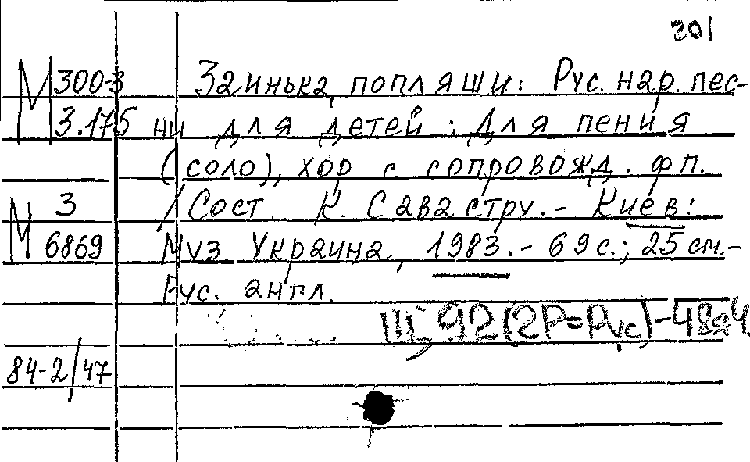 201
М 300-3 Заинька, попляши: Рус. нар. пес-
3.175 ни для детей : Для пения
(соло), хор с сопровожд. фп.
М 3 / Сост К. Савастру. - Киев:
6869 Муз Украина, 1983. - 69 с.; 25 см.-
Рус. англ.
Щ 92(2Р=Рус)-
84-2/47